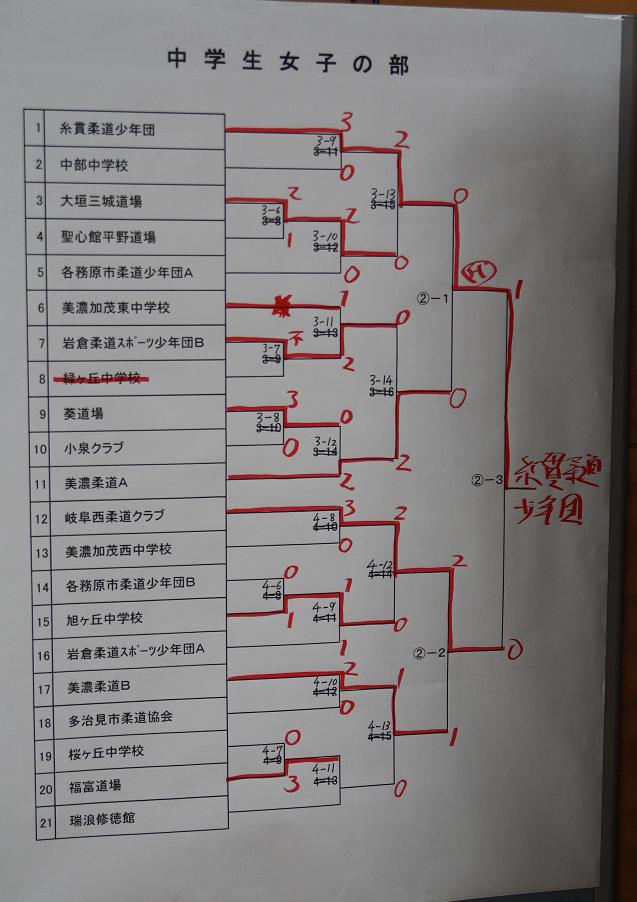 中学生女子の部
1 糸貫柔道少年団
2 中部中学校
3 大垣三城道場
4 聖心館平野道場
5 各務原市柔道少年団A
6 美濃加茂東中学校
7 岩倉柔道スポーツ少年団B
8 緑ヶ丘中学校
9 葵道場
10 小泉クラブ
11 美濃柔道A
12 岐阜西柔道クラブ
13 美濃加茂西中学校
14 各務原市柔道少年団B
15 旭ヶ丘中学校
16 岩倉柔道スポーツ少年団A
17 美濃柔道B
18 多治見市柔道協会
19 桜ヶ丘中学校
20 福富道場
21 瑞浪修徳館
3
3-9
3-11
0
2
3-6
3-8
1
2
3-10
3-12
0
2
3-13
3-15
0
1
3-11
3-13
2
不
3-7
3-9
3
3-8
3-10
0
0
3-12
3-14
2
0
3-14
3-16
2
0
②-1
0
1
3
4-8
4-10
0
0
4-6
4-8
1
1
4-9
4-11
1
2
4-12
4-14
0
2
4-10
4-12
0
0
4-7
4-9
3
4-11
4-13
1
4-13
4-15
0
2
②-2
1
②-3
0
糸貫柔道
少年団